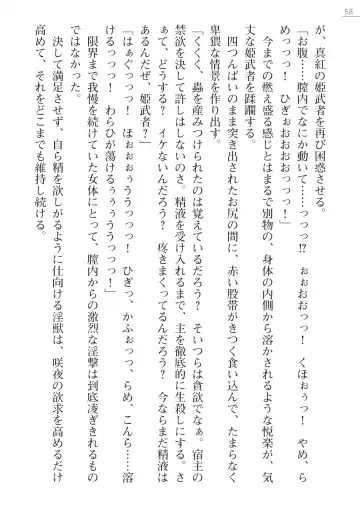 58
が、真紅の姫武者を再び困惑させる。
「お腹……膣内でなにか動いて……っっっ!?　ぉぉおおっっ！　くほぉぅっ！　やめ、ら
めっっっ！　ひぎぉおおおおっっっ！」
今までの燃え盛る感じとはまるで別物の、身体の内側から溶かされるような悦楽が、気
丈な姫武者を蹂躙する。
四つんばいのまま突き出されたお尻の間に、赤い股帯がきつく食い込んで、たまらなく
卑猥な情景を作り上げる。
「くくく、蟲を産みつけられたのは覚えているだろう？　そいつらは貪欲でなぁ。宿主の
禁欲を決して許しはしないのさ。精液を受け入れるまで、主を徹底的に生殺しにする。さ
ぁて、どうする？　イケないんだろう？　疼きまくってるんだろう？　今ならまだ精液は
あるんだぜ、姫武者？」
「はぁぐぅっっっ！　ほおぉぉぅううっっっ！　ひぎっ、かふぉっっ、らめ、こんら……溶
けるぅっっっ！　わらひが蕩けるぅぅぅぅううっっっ！」
限界まで我慢を続けていた女体にとって、膣内からの激烈な淫撃は到底凌ぎきれるもの
ではなかった。
決して満足させず、自ら精を欲しがるように仕向ける淫獣は、咲夜の欲求を高めるだけ
高めて、それをどこまでも維持し続ける。